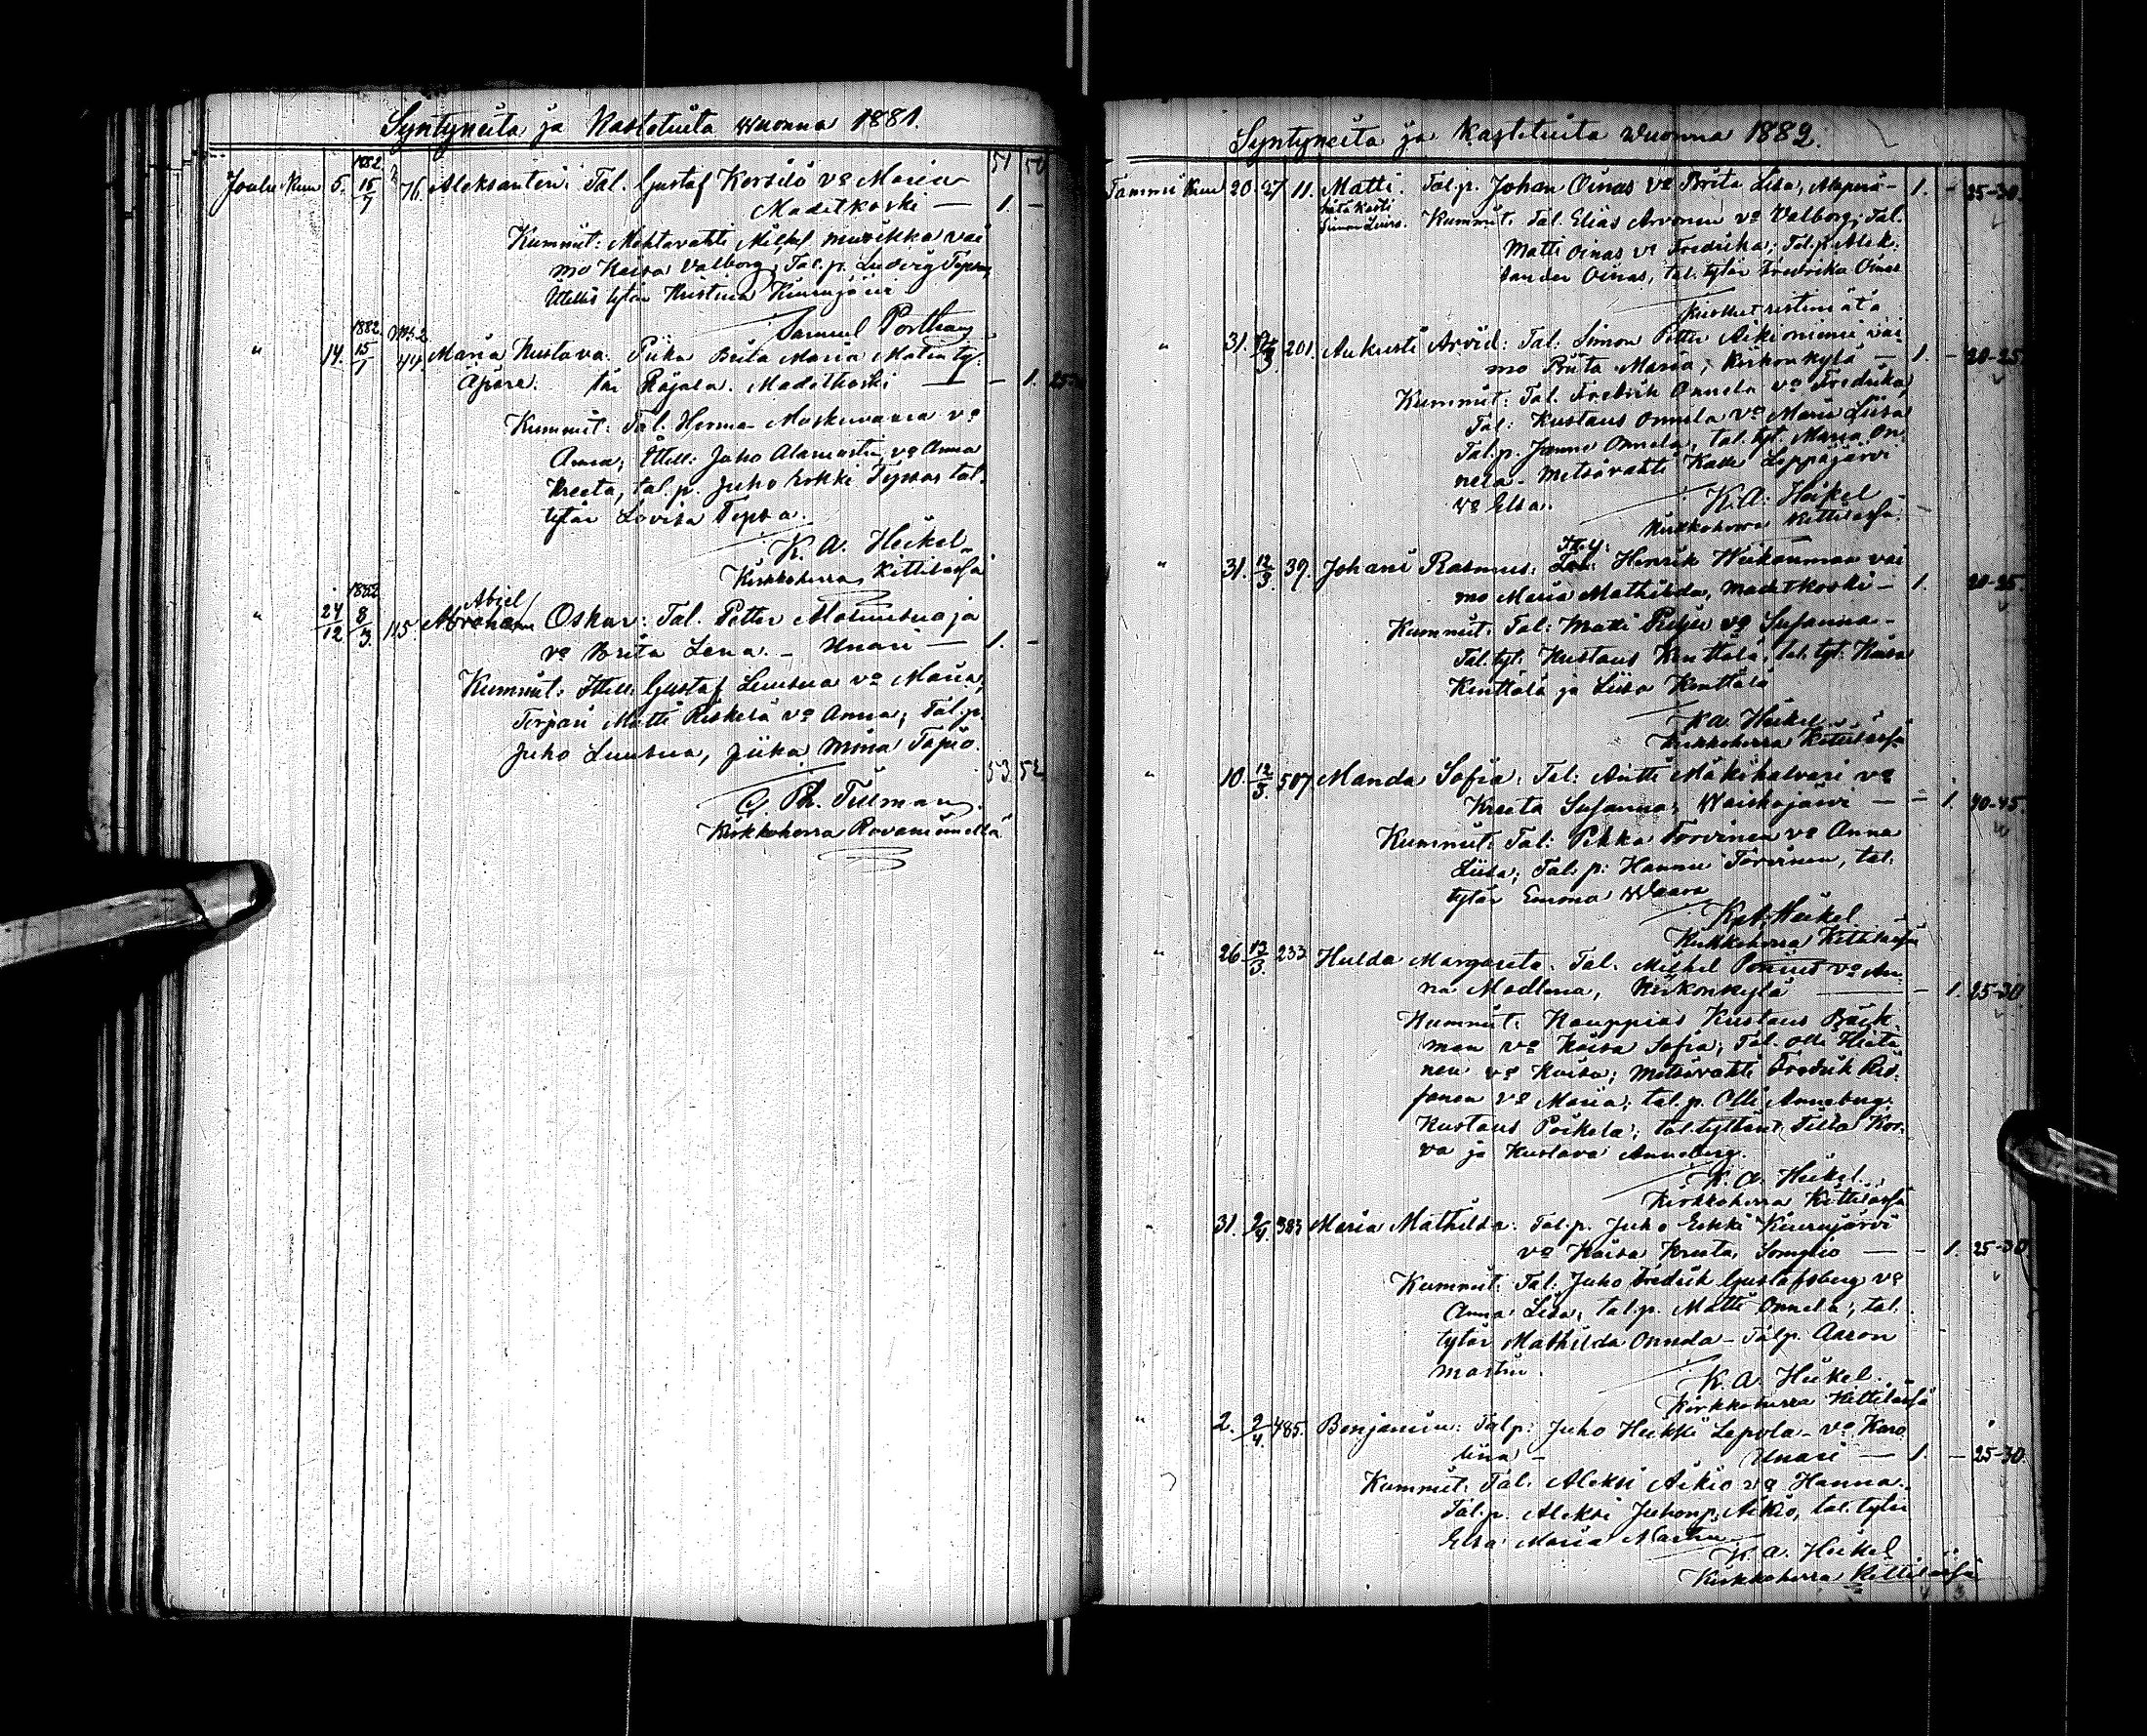 Syntyneitä ja Kastetuita Wuonna 1881.
51 50
1882.
Joulu Kuu 6. 15/1 76. Aleksanteri. Tal. Gustaf Korvilo vo Maria
Madetkoski — 1. —
Kummit: Mehtävahti Mikkel vai
mo Kaisa Valborg; Tal. p. Ludvig Tepsa,
Ittellis tytär Kristina Kuurujärvi
Samuel Porthan
1882.
" 14. 15/1 44. Maria Kustava. Piika Brita Maria Matin ty-
Äpärä. tär Rajala. Madetkoski — — 1. 25-
Kummit: Tal. Herman Moskuvaara vo
Anna; Ittell: Juho Alamartin vo Anna
Kreeta, tal. p. Juho Erkki Tepsa, tal.
tytär Lovisa Tepsa.
K. A. Heikel
Kirkkoherra Kittilässä
1882
Abiel
" 24/12 8/3. 115. Abraham Oskar: Tal. Petter
vo Brita Lena. — Unari — 1. —
Kummit: Ittell. Gustaf Luusua vo Maria,
Torpari Matti vo Anna; Tal. p.
Juho Luusua, piika Mina Tapio.
53 52
G. Ph. Tillman
Kirkkoherra Rovaniemellä
Syntyneitä ja Kastetuita Wuonna 1882.
Tammi Kuu 20 27 11. Matti. Tal. p. Johan Oinas vo Brita Lisa, — 1. — 25-30.
Kummit. Tal. Elias Arvonen vo Valborg; Tal.
Matti Oinas vo Fredrika; Tal. p. Alek-
sander Oinas, tal. tytär Fredrika Oinas
" 31. 201. Aukusti Arvid: Tal: Simon Petter Aikioniemi vai-
mo Brita Maria, Kirkonkylä — 1. — 20-25.
Kummit: Tal. Fredrik Onnela vo Fredrika,
Tal: Kustaus Onnela vo Maria Liisa
Tal. p. Onnela, tal. tyt. Maria On-
nela — Metsävahti Kalle Leppäjärvi
vo Elsa.
K. A. Heikel
Kirkkoherra Kittilässä.
" 31. 12/3. 39. Johani Rasmus: Henrik vai
mo Maria Mathilda, Madetkoski — 1. 20-25.
Kummit: Tal: Matti vo Susanna —
Tal. tyt. Kustaus Kenttälä, tal. tyt. Kaisa
Kenttälä ja Liisa Kenttälä
K. A. Heikel
Kirkkoherra Kittilässä
" 10. 12/3. 507 Manda Sofia: Tal: Antti vo
Kreeta Susanna; Waiskojärvi — — 1. 40-45.
Kummit: Tal: Pekka Torvinen vo Anna
Liisa; Tal. p: Hannu Torvinen, tal.
tytär Emma Waara
K. A. Heikel
Kirkkoherra Kittilässä
" 26. 12/3. 233 Hulda Margareta. Tal. Mikkel vo An-
na Madlena, Kirkonkylä — — 1. 25-30
Kummit: Kauppias Kustaus Bäck-
man vo Kaisa Sofia; Tal. Olli Hieta-
nen vo Kaisa; Metsävahti Fredrik
vo Maria; tal. p. Olli Anneberg,
Kustaus Poikela; tal. tyttäret Tilta Kor-
va ja Kustava Anneberg.
K. A. Heikel.
Kirkkoherra Kittilässä
" 31. 2/4. 383 Maria Mathilda: Tal. p. Juho Erkki Kuurujärvi
vo Kaisa Kreeta, Sompio — — 1. 25-30
Kummit: Tal. Juho Fredrik Gustafsberg vo
Anna Lisa; tal. p. Matti Onnela; tal.
tytär Mathilda Onnela — Tal p. Aaron
Martin.
K. A. Heikel.
Kirkkoherra Kittilässä
" 2. 2/4. 485. Benjamin: Tal p: Juho Heikki Lepola — vo Karo
lina — Unari — 1. — 25-30.
Kummit: Tal. Aleksi Aikio vo Hanna.
Tal. p. Aleksi Juhonp. Aikio, tal. tytär
Elsa Maria Martin
K. A. Heikel
Kirkkoherra Kittilässä